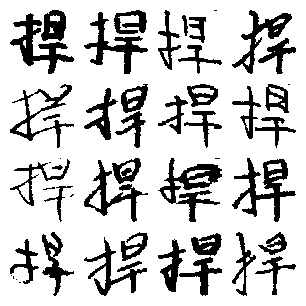 捍捍捍捍
捍捍捍捍
捍捍捍捍
捍捍捍捍